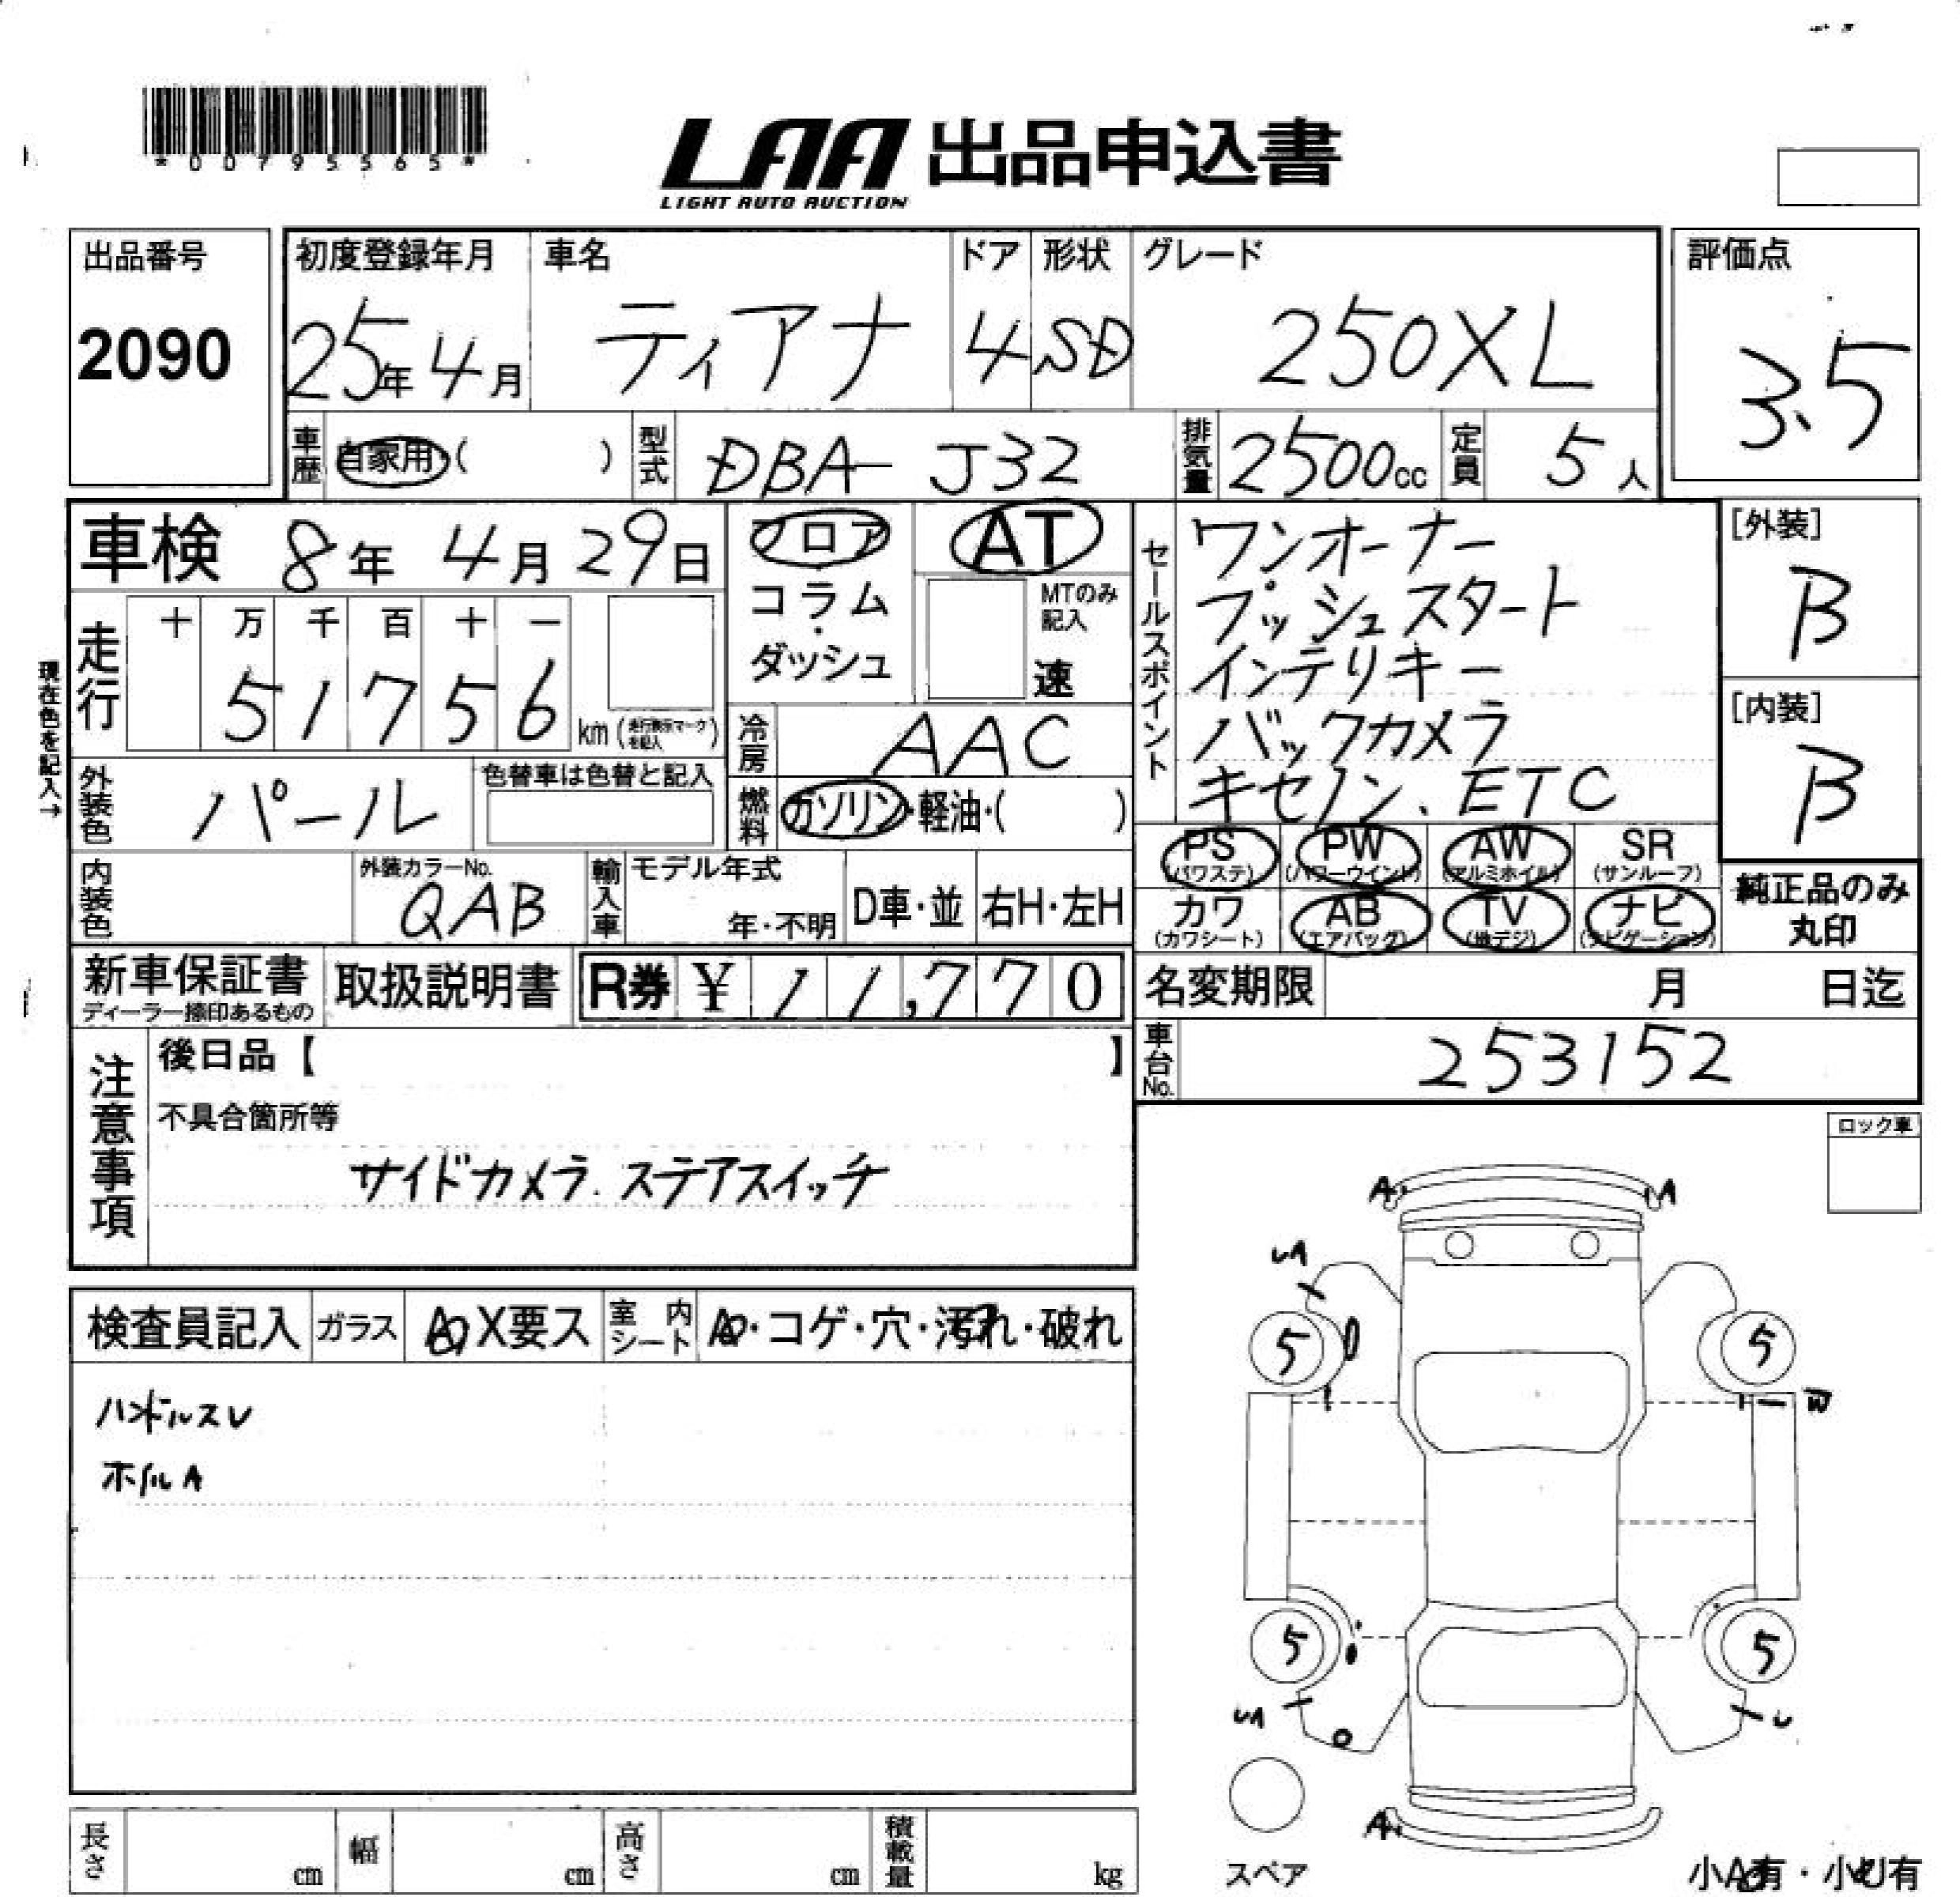 *00795565*
LAA 出品申込書
LIGHT AUTO AUCTION
出品番号
2090
初度登録年月
25年 4月
車名
ティアナ
ドア
4
形状
SD
グレード
250XL
評価点
3.5
車歴 自家用・( )
型式 DBA-J32
排気量 2500cc
定員 5人
車検 8年 4月 29日
フロア
コラム・
ダッシュ
AT
MTのみ
記入
速
走行
十 万 千 百 十 一
5 1 7 5 6
km (走行表示マークを記入)
現在色を記入→
冷房 AAC
燃料 ガソリン・軽油・( )
外装色 パール
色替車は色替と記入
内装色
外装カラーNo.
QAB
輸入車
モデル年式
年・不明
D車・並
右H・左H
セールスポイント
ワンオーナー
プッシュスタート
インテリキー
バックカメラ
キセノン、ETC
[外装]
B
[内装]
B
PS
(パワステ)
PW
(パワーウインド)
AW
(アルミホイル)
SR
(サンルーフ)
カワ
(カワシート)
AB
(エアバッグ)
TV
(地デジ)
ナビ
(ナビゲーション)
純正品のみ
丸印
新車保証書
ディーラー捺印あるもの
取扱説明書
R券 ¥ 11,770
名変期限 月 日迄
車台No. 253152
注意事項
後日品【 】
不具合箇所等
サイドカメラ. ステアスイッチ
ロック車
検査員記入
ガラス
A X要ス
室内シート
・コゲ・穴・汚れ・破れ
ハンドルスレ
ホイルA
A A
UA
5 5
W
5 5
UA U
A
スペア
長さ cm
幅 cm
高さ cm
積載量 kg
小A有・小U有